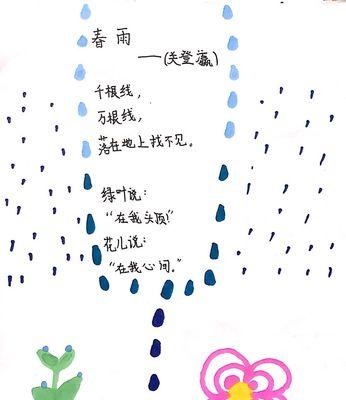 春雨
——(关登瀛)
千根线，
万根线，
落在地上找不见。
绿叶说：
“在我头顶！”
花儿说：
“在我心间。”